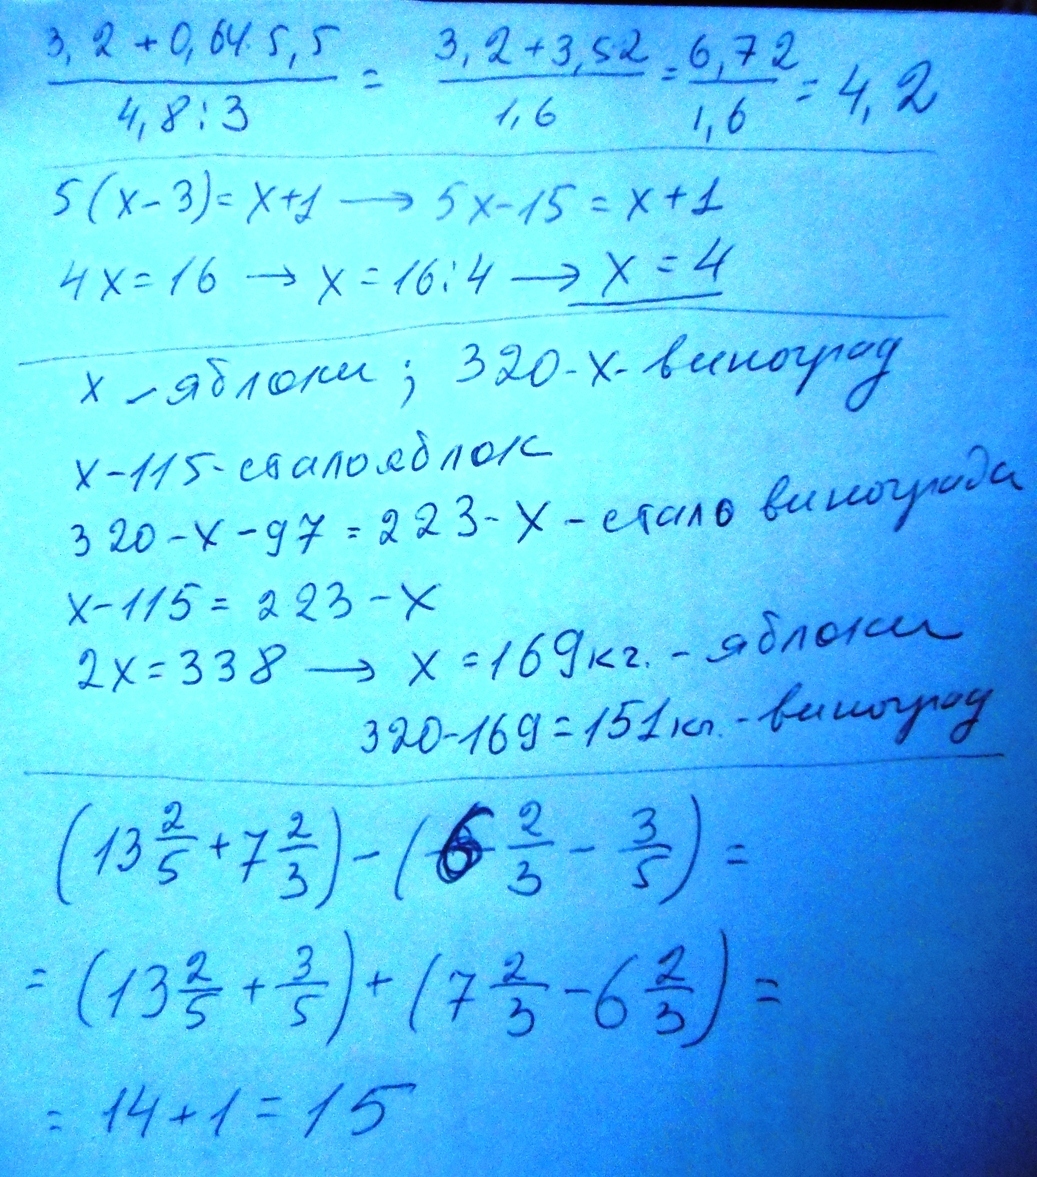 3,2+0,64·5,5 / 4,8:3 = 3,2+3,52 / 1,6 = 6,72 / 1,6 = 4,2
5(x-3)=x+1 → 5x-15=x+1
4x=16 → x=16:4 → x=4
x - яблоки; 320-x- виноград
x-115- стало яблок
320-x-97=223-x - стало винограда
x-115=223-x
2x=338 → x=169кг. - яблоки
320-169=151кг. - виноград
(13 2/5 + 7 2/3) - (6 2/3 - 3/5) =
= (13 2/5 + 3/5) + (7 2/3 - 6 2/3) =
= 14+1=15